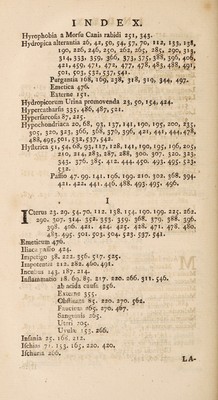 INDEX.
Hyrophobia a Morsu Canis rabidi 251, 343.
Hydropica alterantia 26, 42, 50, 54, 57, 70, 112, 133, 138,
190, 226, 246, 250, 262, 265, 285, 290, 313,
314, 333, 359, 366, 373, 375, 388, 396, 406,
421, 459, 471, 472, 477, 478, 483, 488, 491,
501, 503, 532, 537, 541.
Purgantia 108, 169, 238, 318, 319, 344, 497.
Emetica 476.
Externe 251.
Hydropicorum Urina promovenda 23, 50, 154, 424.
Hypercatharsis 335, 486, 487, 521.
Hypersarcosis 87, 215.
Hypochondriaca 20, 68, 93, 137, 141, 190, 195, 200, 235,
305, 320, 323, 366, 368, 376, 396, 421, 441, 444, 478,
488, 495, 501, 532, 537, 541.
Hysterica 51, 54, 68, 93, 117, 128, 141, 190, 195, 196, 205,
210, 214, 283, 287, 288, 300, 307, 320, 323,
343, 376, 385, 412, 444, 450, 493, 495, 523,
532.
Passio 47. 99. 141. 196. 199. 210. 302. 368. 394.
421. 422. 441. 446. 488. 493. 495. 496.
I
ICterus 23. 29. 54. 70. 112. 138. 154. 190. 199. 225. 262.
290. 307. 314. 352. 353. 359. 368. 379. 388. 396.
398. 406. 421. 424. 425. 428. 471. 478. 480.
483. 495. 501. 503. 504. 523. 537. 541.
Emeticum 476.
Iliaca passio 424.
Impetigo 38. 222. 356. 517. 525.
Impotentia 112. 282. 460. 491.
Incubus 143. 187. 214.
Inflammatio 18. 69. 85. 217. 220. 266. 311. 546.
ab acida causa 356.
Externe 355.
Obstinata 25. 220. 270. 562.
Faucium 265. 270. 467.
Sanguinis 265.
Uteri 205.
Uvula 153. 266.
Insania 25. 168. 212.
Ischias 71. 153. 165. 220. 420.
Ischuria 266.
LA-